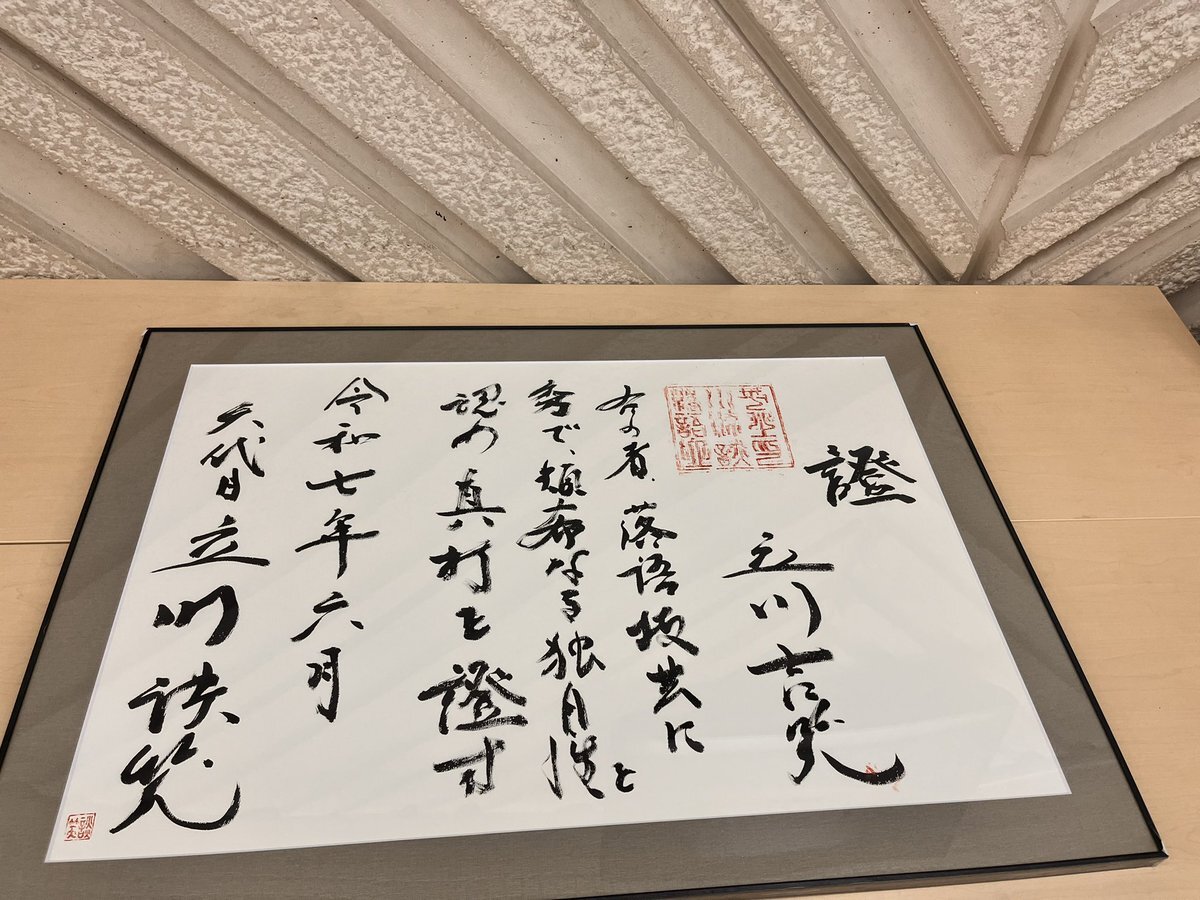 證
立川吉笑
右の者、落語技芸に
秀で、類希なる独自性を
認め真打を證す
令和七年六月
六代目立川談笑
談笑